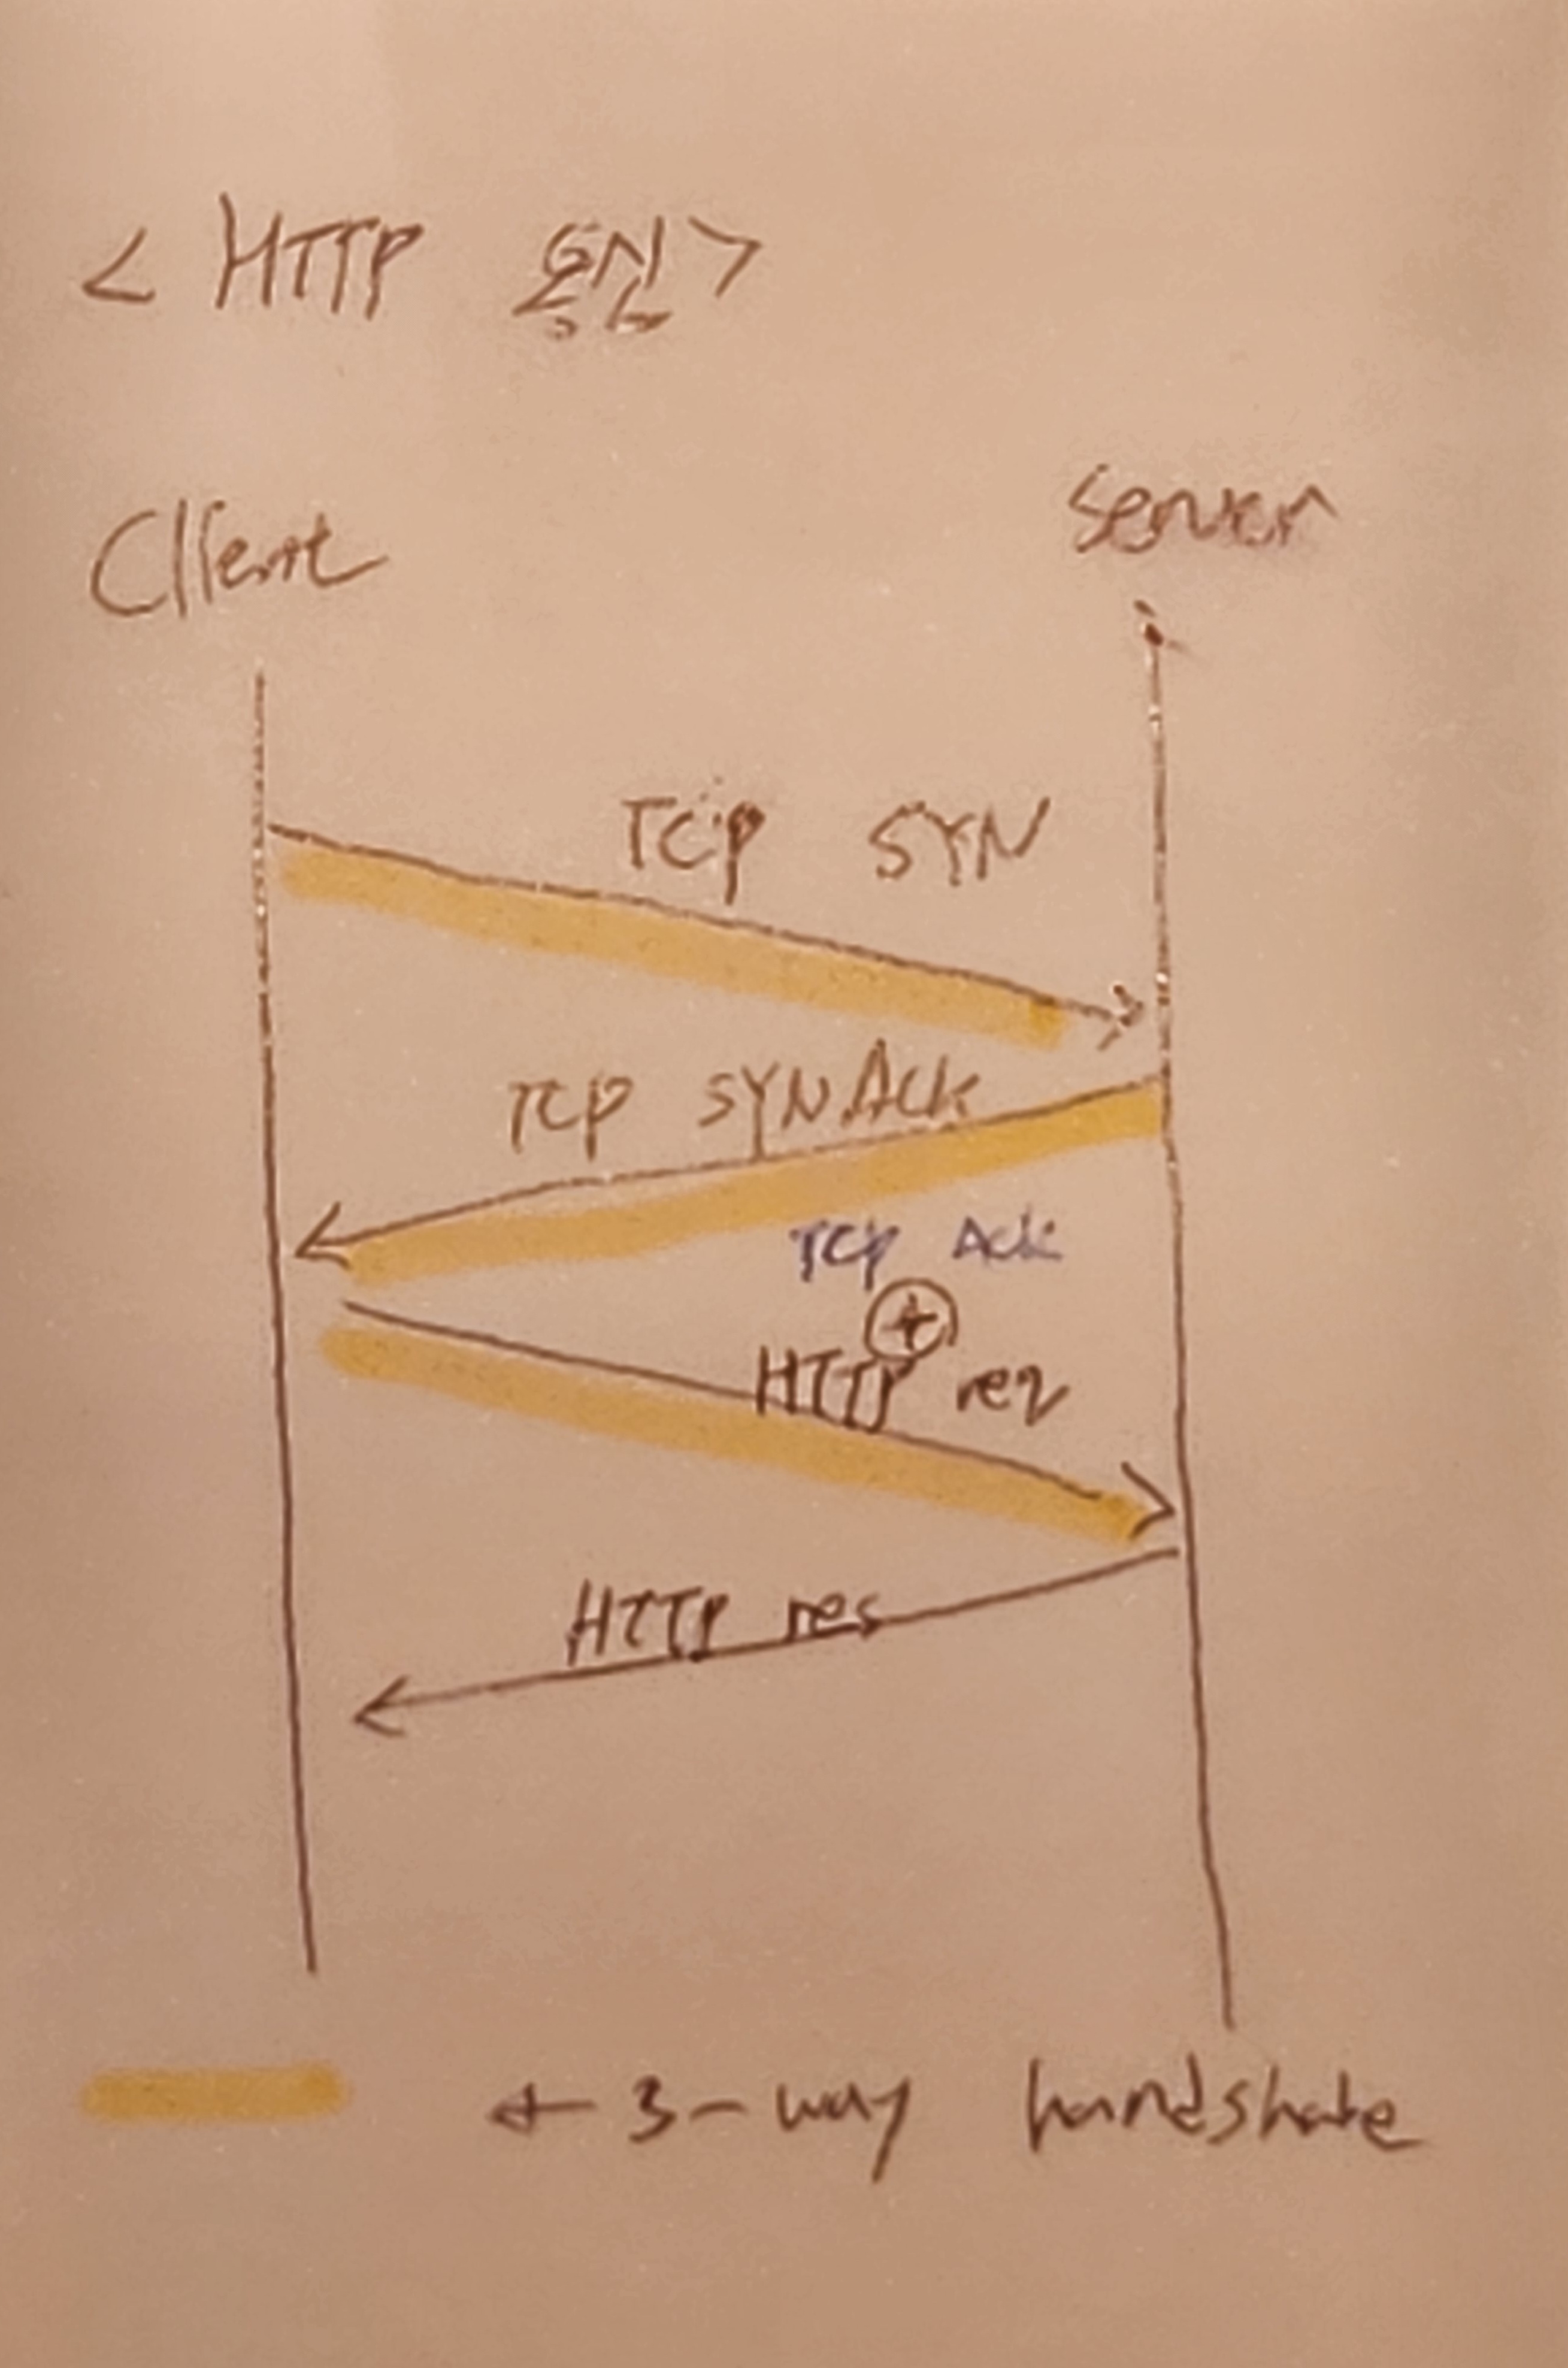 < HTTP 통신 >
Client
Server
TCP SYN
TCP SYN Ack
TCP Ack
+
HTTP req
HTTP res
← 3-way handshake